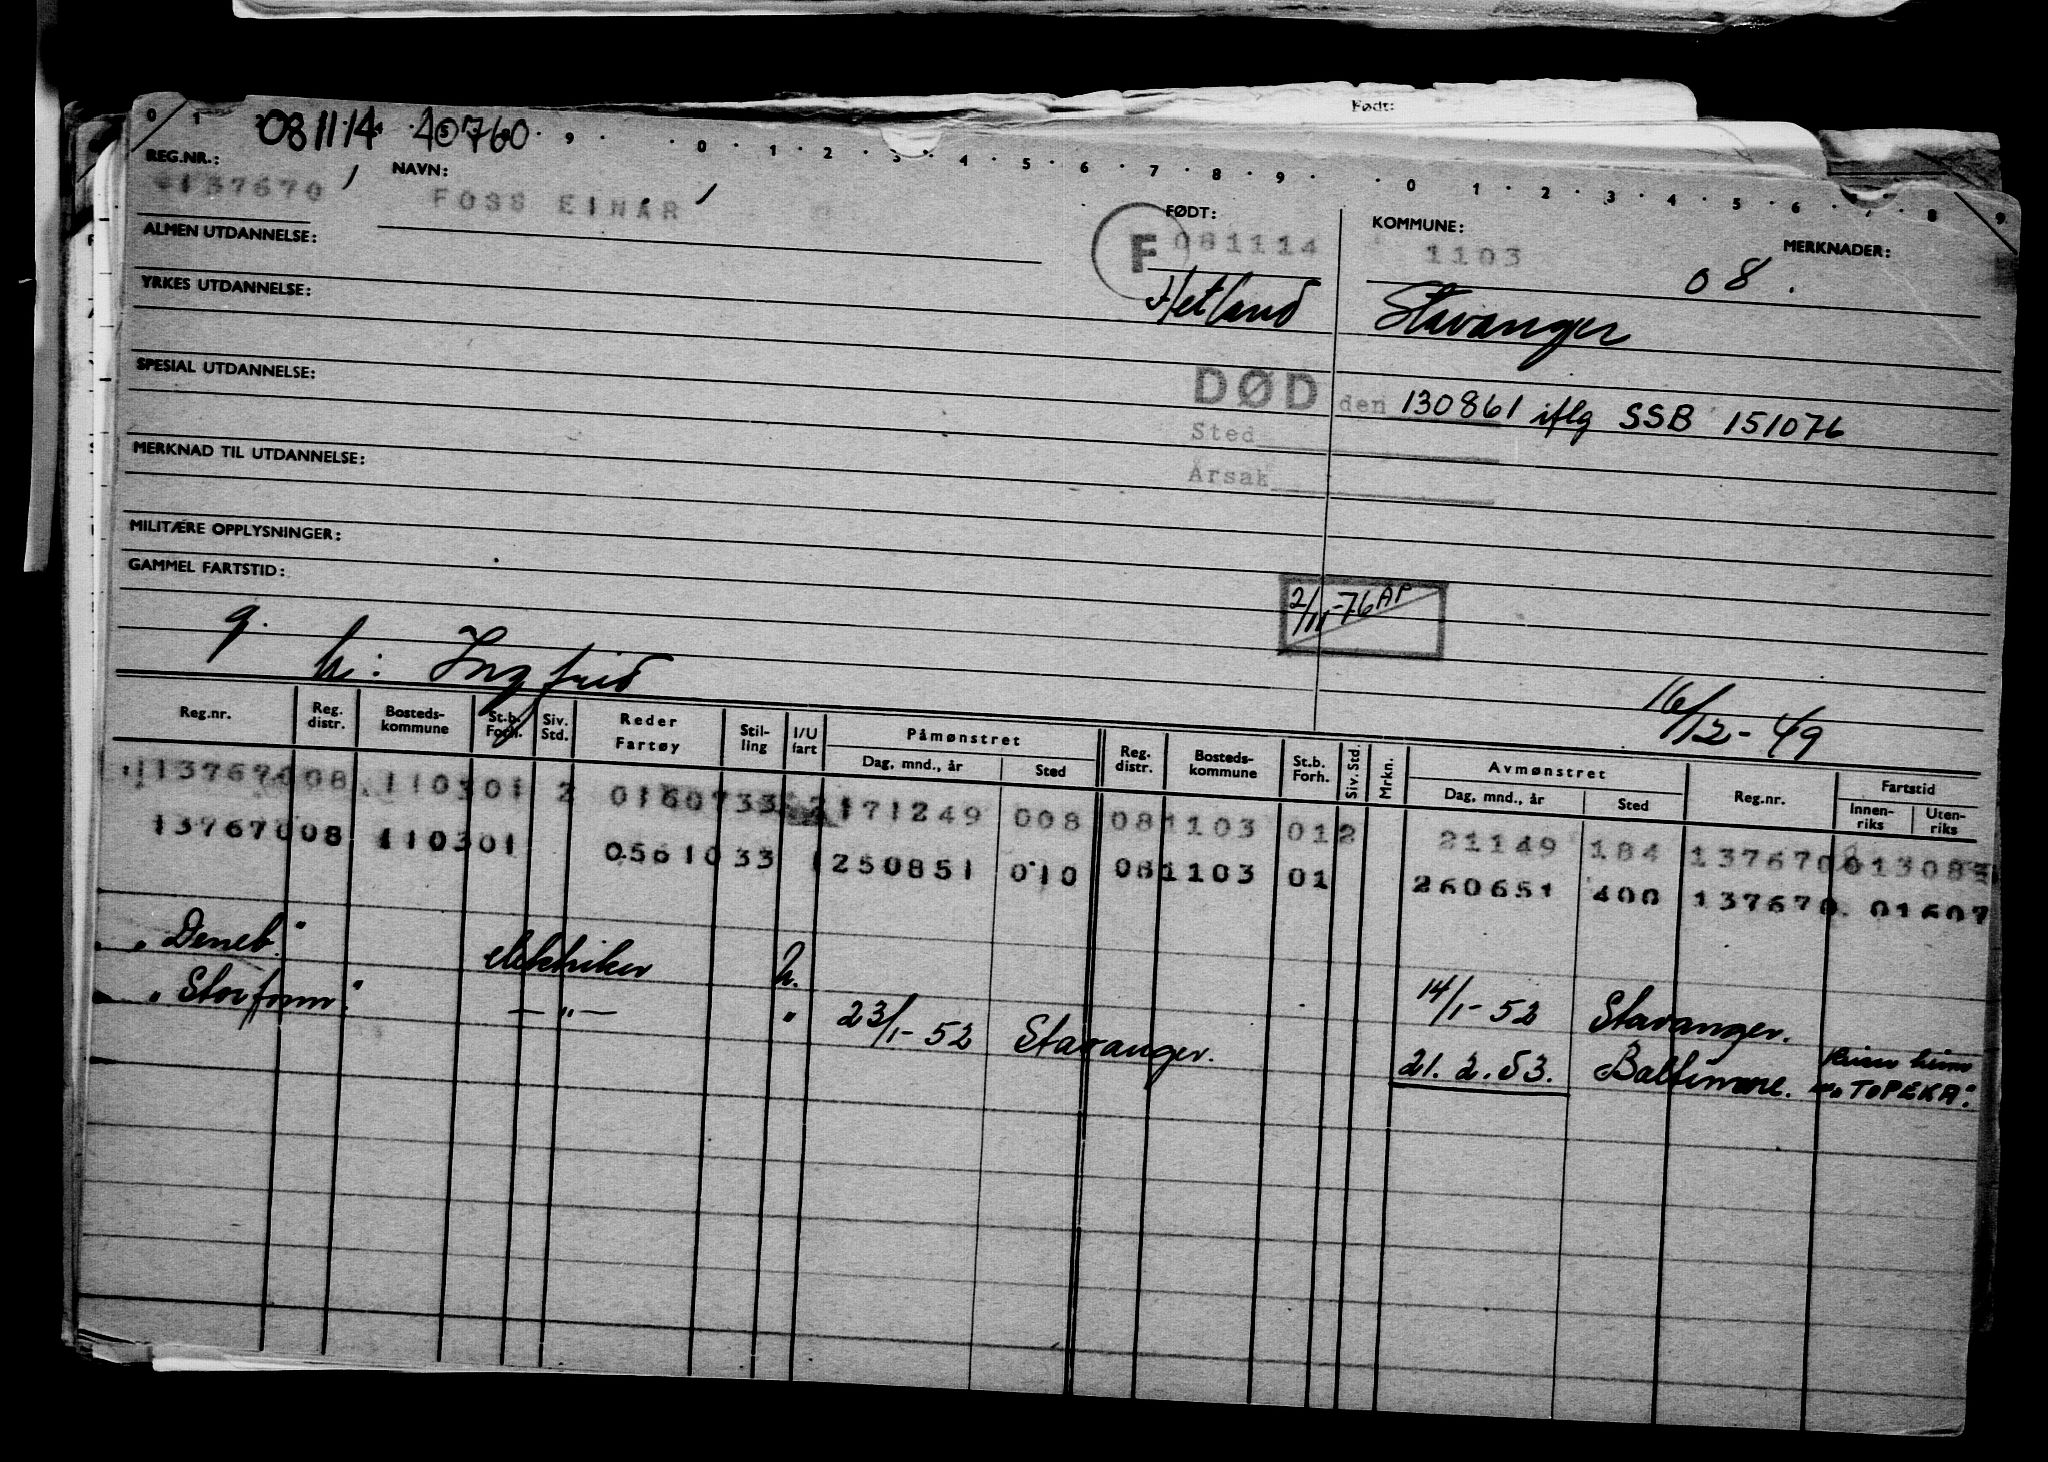 Født:
0 1 081114 40760 9 0 1 2 3 4 5 6 7 8 9 0 1 2 3 4 5 6 7 8 9
REG.NR.: NAVN: FØDT: KOMMUNE: MERKNADER:
137670 FOSS EINAR F 081114 1103 08.
ALMEN UTDANNELSE: Hetland Stavanger
YRKES UTDANNELSE:
SPESIAL UTDANNELSE: DØD den 130861 iflg SSB 151076
Sted
MERKNAD TIL UTDANNELSE: Årsak
MILITÆRE OPPLYSNINGER:
GAMMEL FARTSTID: 2/11-76 AP
g. h: Ingfrid 16/12-49
Reg.nr. Reg. distr. Bosteds-kommune St.b. Forh. Siv. Std. Reder Fartøy Stil-ling I/U fart Påmønstret Dag, mnd., år Sted Reg. distr. Bosteds-kommune St.b. Forh. Siv. Std. Mrkn. Avmønstret Dag, mnd., år Sted Reg.nr. Fartstid Innen-riks Uten-riks
137670 08 1103 01 2 01607 33 2 171249 008 08 1103 01 2 21149 184 137670 013083
137670 08 1103 01 05610 33 1 250851 010 08 1103 01 260651 400 137670 01607
"Deneb" elektriker h. 14/1-52 Stavanger.
"Storfonn" —"— " 23/1-52 Stavanger. 21.2.53. Baltimore. heim
"TOPEKA"